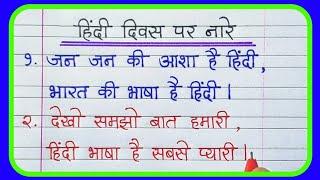 हिंदी दिवस पर नारे
१. जन जन की आशा है हिंदी,
भारत की भाषा है हिंदी।
२. देखो समझो बात हमारी,
हिंदी भाषा है सबसे प्यारी।